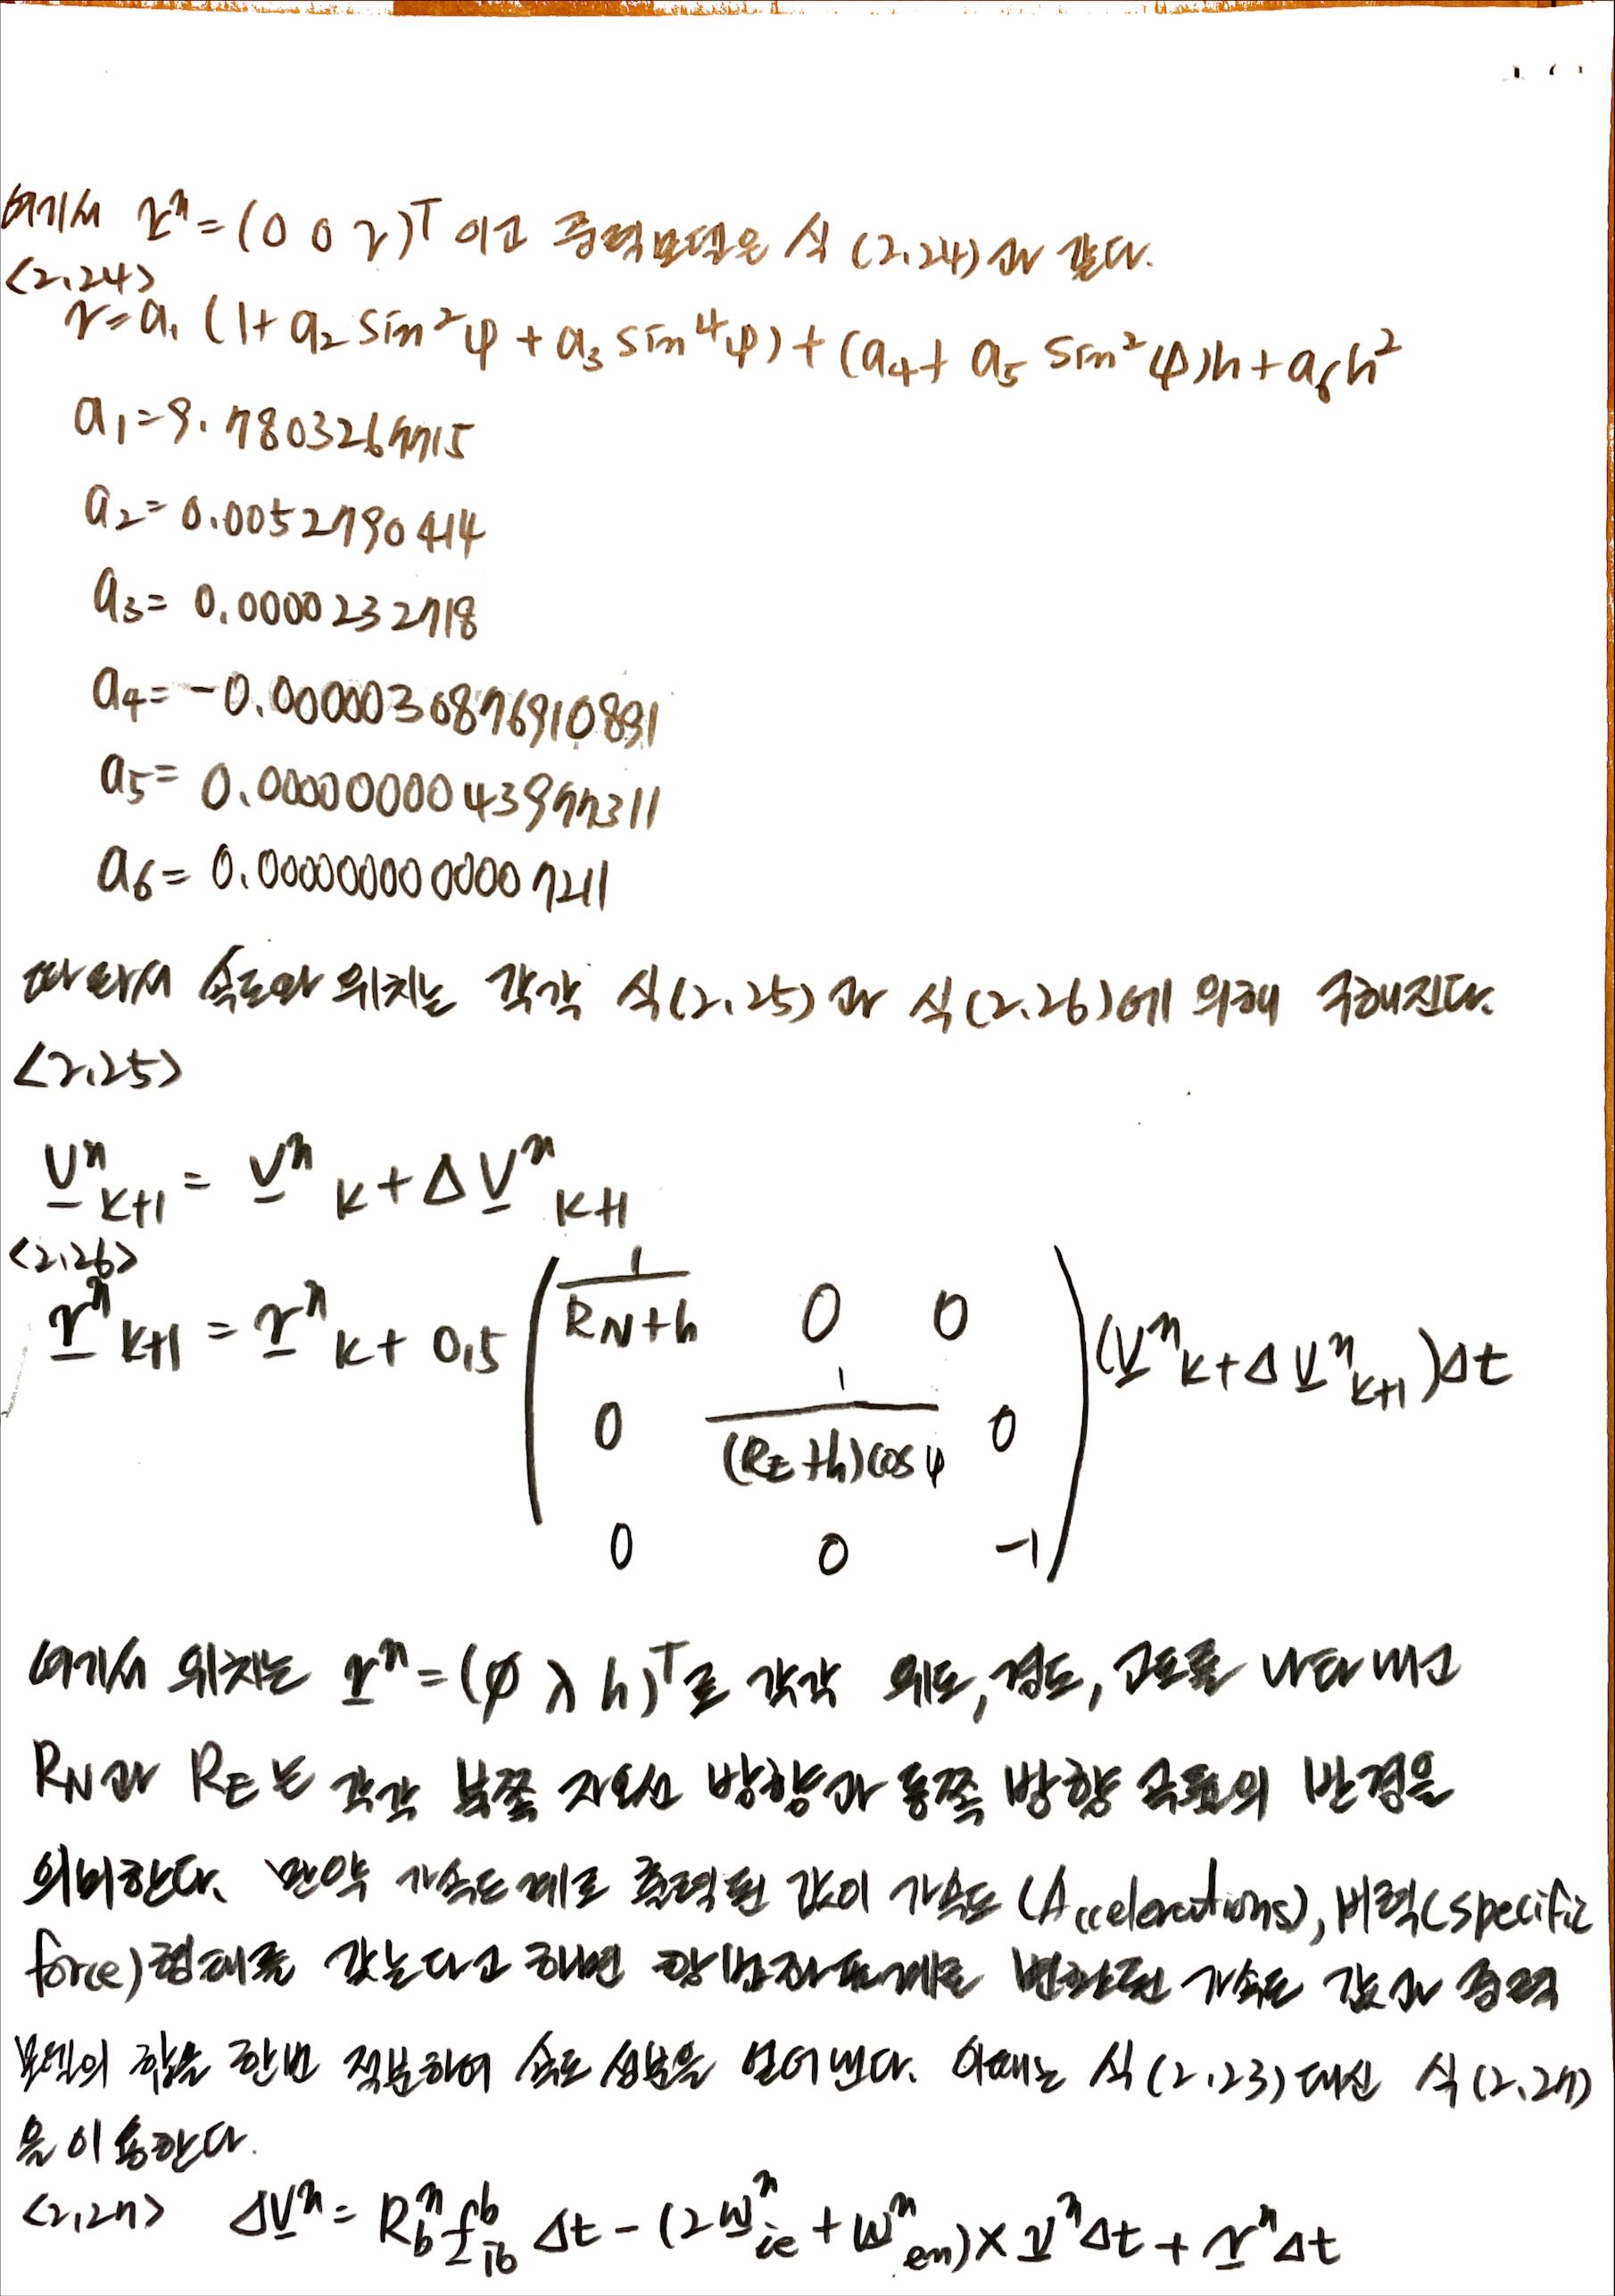 여기서 r^n = (0 0 r)^T 이고 중력모델은 식 (2.24)과 같다.
<2.24>
r = a₁ (1 + a₂ sin²φ + a₃ sin⁴φ) + (a₄ + a₅ sin²φ)h + a₆h²
a₁ = 9.7803267715
a₂ = 0.0052790414
a₃ = 0.0000232718
a₄ = -0.0000030876910891
a₅ = 0.0000000043977311
a₆ = 0.0000000000007211
따라서 속도와 위치는 각각 식(2.25)과 식(2.26)에 의해 구해진다.
<2.25>
v^n_{k+1} = v^n_k + Δv^n_{k+1}
<2.26>
r^n_{k+1} = r^n_k + 0.5 ( 1/(R_N+h) 0 0
0 1/((R_E+h)cosφ) 0
0 0 -1 ) (v^n_k + Δv^n_{k+1})Δt
여기서 위치는 r^n = (φ λ h)^T로 각각 위도, 경도, 고도를 나타내고
R_N과 R_E는 각각 북쪽 자오선 방향과 동쪽 방향 곡률의 반경을
의미한다. 만약 가속도계로 출력된 값이 가속도 (Accelerations), 비력(specific
force)형태를 갖는다고 하면 항법좌표계로 변환된 가속도 값과 중력
모델의 합을 한번 적분하여 속도 성분을 얻어낸다. 이때는 식(2.23)대신 식(2.27)
을 이용한다.
<2.27> Δv^n = R^n_b f^b_{ib} Δt - (2ω^n_{ie} + ω^n_{en}) × v^n Δt + r^n Δt